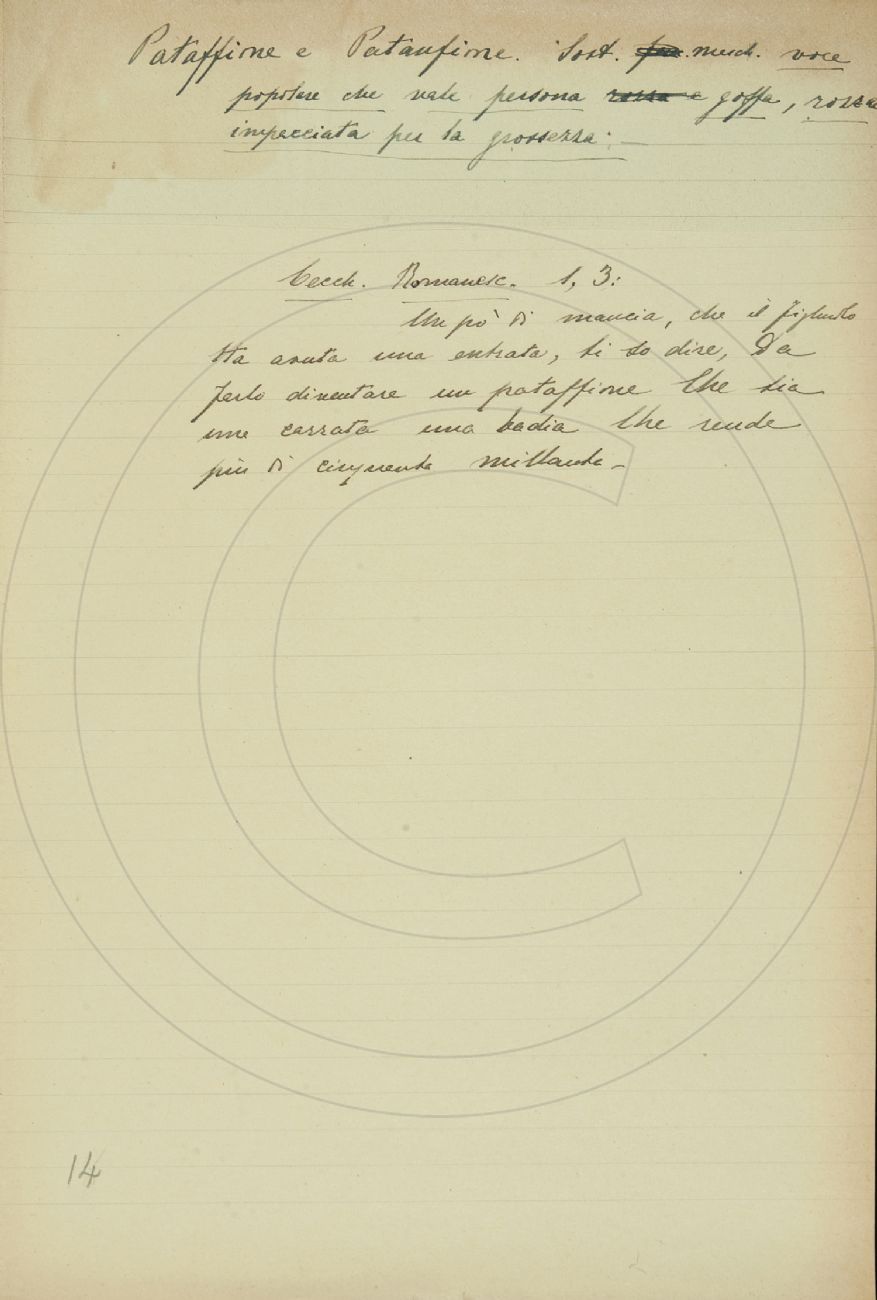 Pataffione e Pataufione. Sost. masch. voce
popolare che vale persona rozza e goffa, rozza
impacciata per la grossezza: —
Cecch. Romanesc. 1, 3:
Un po' di mancia, che il figliuolo
Ha avuta una entrata, vi so dire, Da
farlo diventare un pataffione Che sia
una carrata una badia Che rende
più di cinquanta millanta –
14